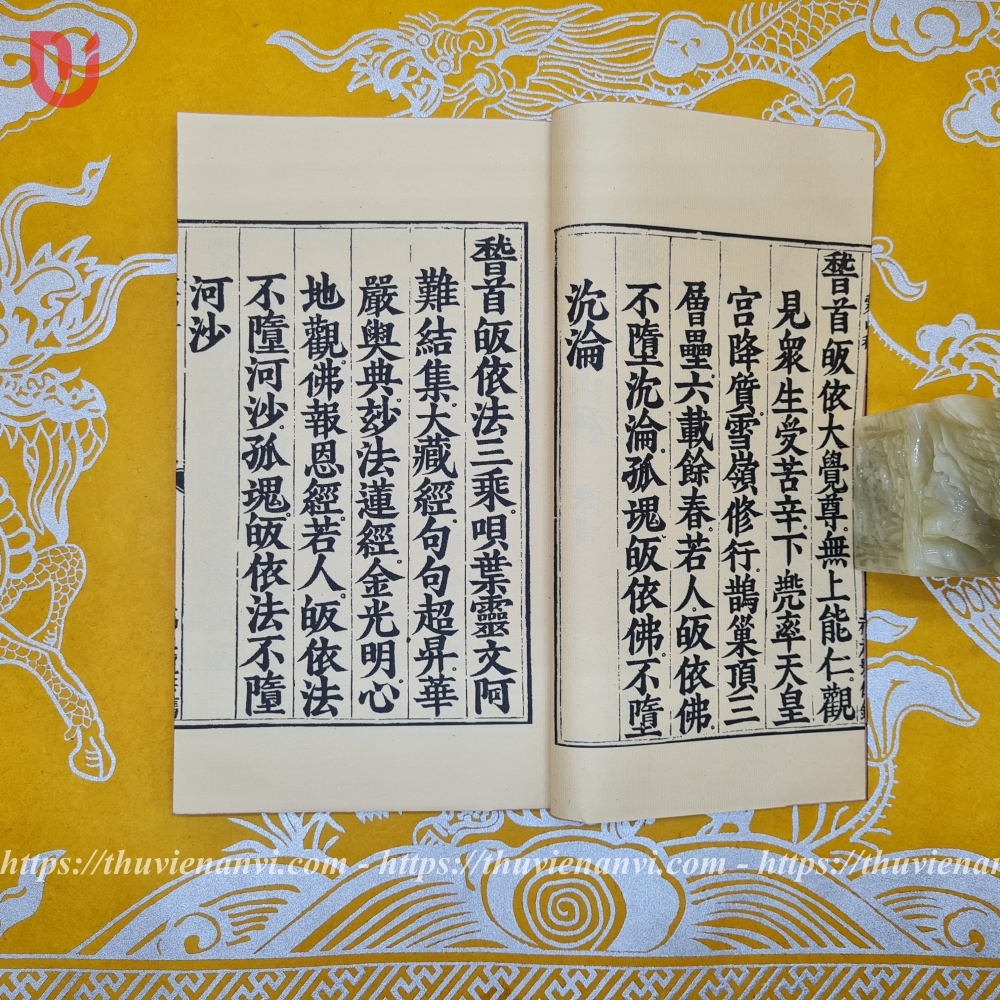 稽首皈依大覺尊。無上能仁。觀
見衆生受苦辛。下兠率天皇
宮降質。雪嶺修行。鵲巢頂三
層壘六載餘春。若人皈依佛。
不墮沉淪。孤魂皈依佛。不墮
沉淪
稽首皈依法三乘。唄葉靈文。阿
難結集大藏經。句句超昇。華
嚴與典。玅法蓮經。金光明。心
地觀佛報恩經。若人皈依法
不墮河沙。孤魂皈依法不墮
河沙
https://thuvienanvi.com - https://thuvienanvi.com - https://thuviena